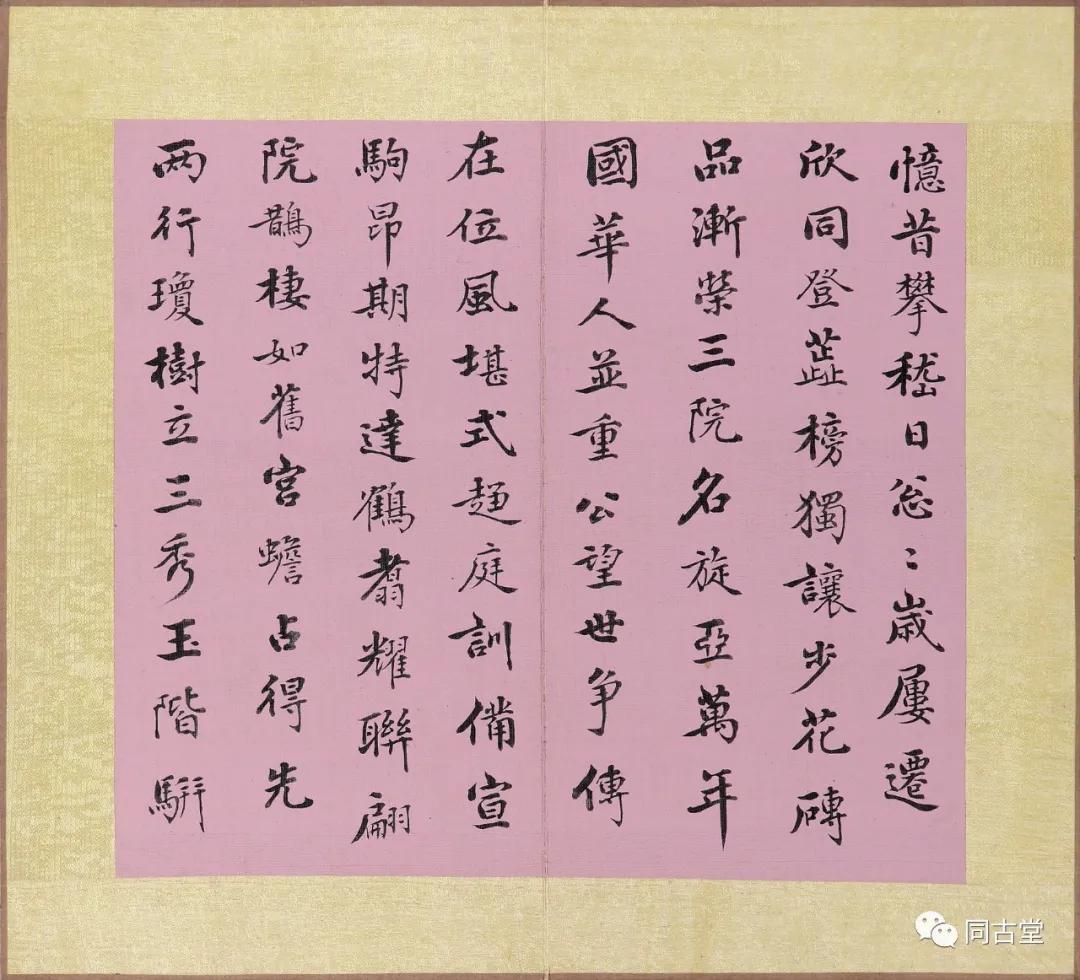 憶昔攀嵇日忩〻歲屢遷
欣同登蕋榜獨讓步花磚
品漸榮三院名旋亞萬年
國華人並重公望世争傳
在位風堪式趍庭訓備宣
駒昂期特達鶴翥耀聯翩
院鵲棲如舊宮蟾占得先
兩行瓊樹立三秀玉階駢
同古堂